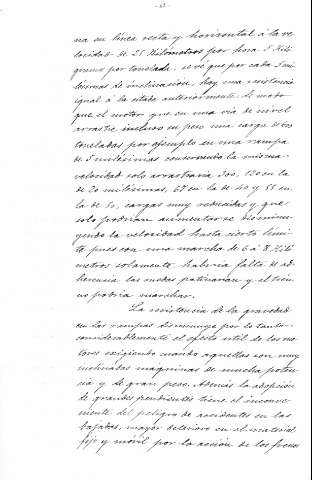 - 63 -
na en línea recta y horizontal á la ve-
locidad de 25 Kilometros por hora 5 Kilo
gramos por tonelada, se vé que por cada 5 mi-
lesimas de inclinación, hay una resistencia
igual á la citada anteriormente de modo
que el motor que en una via de nivel
arrastre incluso su peso una carga de 600
toneladas por ejemplo en una rampa
de 5 milésimas conservando la misma
velocidad solo arrastraria 300, 120 en la
de 20 milésimas, 67 en la de 40 y 55 en
la de 50, cargas muy reducidas y que
solo podrian aumentarse disminu-
yendo la velocidad hasta cierto limi-
te pues con una marcha de 6 á 8 Kiló
metros solamente habria falta de ad-
herencia las ruedas patinarian y el tren
no podria marchar.
La resistencia de la gravedad
en las rampas disminuye por lo tanto
considerablemente el efecto util de los mo-
tores exigiendo cuando aquellas son muy
inclinadas máquinas de mucha poten-
cia y de gran peso. Además la adopción
de grandes pendientes tiene el inconve-
niente del peligro de accidentes en las
bajadas, mayor deterioro en el material
fijo y móvil por la acción de los frenos